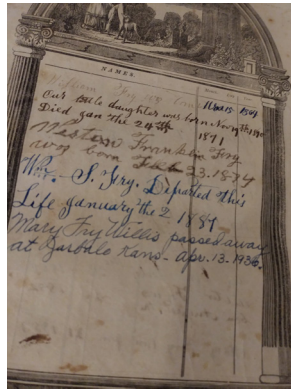 NAMES.
William Fry
Our little daughter was born Nov
Died Jan the 24th 1871
Franklin Fry
was born Feb 23. 1874
Wm. S. Fry. Departed This
Life January the 2 1889
Mary Fry Willis passed away
at Kans - Apr. 13 - 1936.